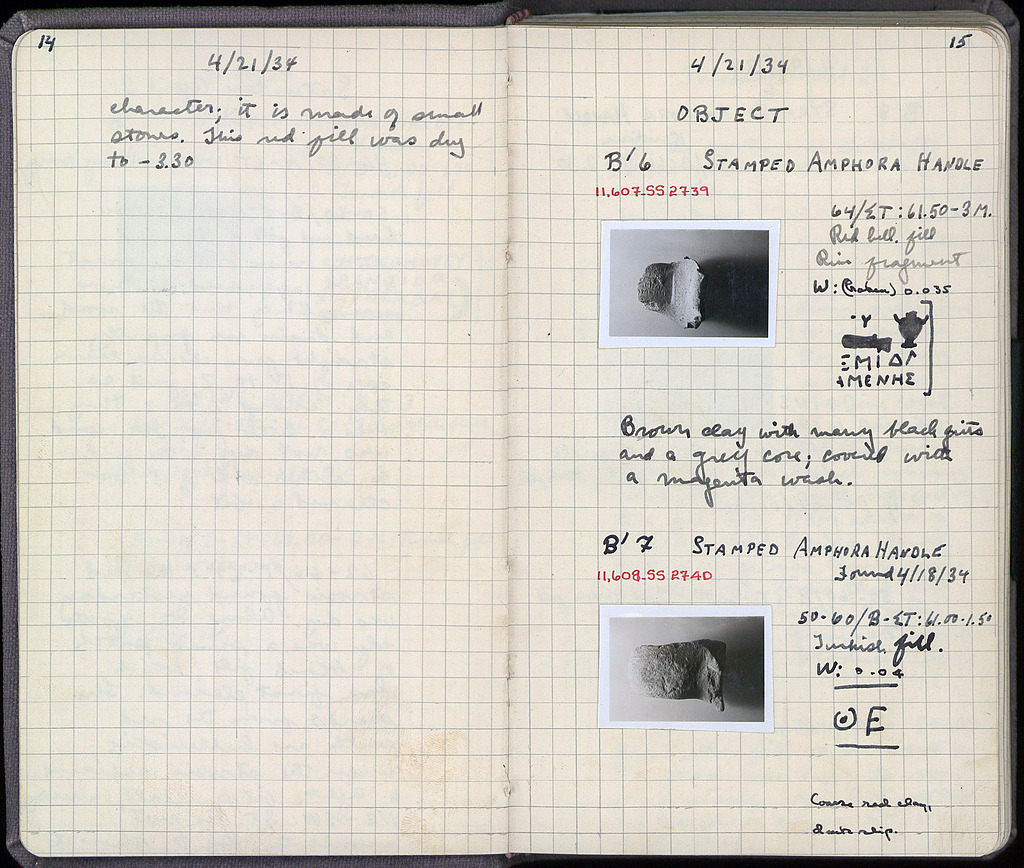 14
4/21/34
character; it is made of small
stones. This red fill was dug
to -3.30
15
4/21/34
OBJECT
B'6 STAMPED AMPHORA HANDLE
11,607-SS 2739
64/ΣΤ: 61.50-3 M.
Red fill
Rim fragment
W: (broken) 0.035
ΕΜΙ ΔΛ
ΑΜΕΝΗΣ
Brown clay with many black grits
and a grey core; covered with
a magenta wash.
B'7 STAMPED AMPHORA HANDLE
Found 4/18/34
11,608-SS 2740
50-60/B-ΣΤ: 61.00-1.50
Turkish fill.
W: 0.04
ΟΕ
Coarse red clay,
slip.